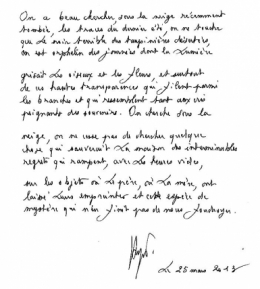 On a beau chercher, sous la neige récemment
tombée, les traces du dernier été, on ne touche
que la main terrible des
on est orphelin des journées dont la lumière
grisait les oiseaux et les fleurs, et surtout
de ces hautes transparences qui filent parmi
les branches et qui ressemblent tant aux cris
poignants des souvenirs. On cherche sous la
neige, on ne cesse pas de chercher quelque
chose qui sauverait la maison des interminables
regrets qui rampent, avec les heures vides,
sur les objets où le père, où la mère, ont
laissé leurs empreintes et cette espèce de
mystère qui n'en finit pas de nous foudroyer.
Le 25 mars 2013